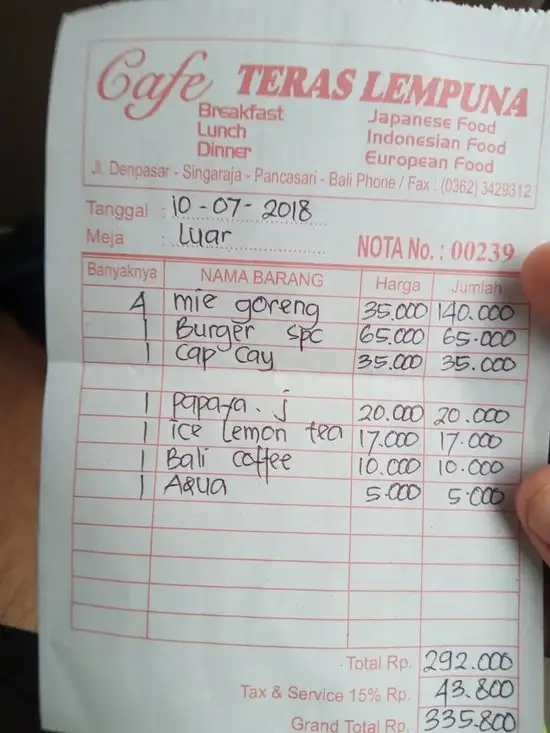 Cafe TERAS LEMPUNA
Breakfast Japanese Food
Lunch Indonesian Food
Dinner European Food
Jl. Denpasar - Singaraja - Pancasari - Bali Phone / Fax : (0362) 3429312
Tanggal : 10-07-2018
Meja : Luar NOTA No. : 00239
Banyaknya NAMA BARANG Harga Jumlah
4 mie goreng 35.000 140.000
1 Burger spc 65.000 65.000
1 cap cay 35.000 35.000
1 papaya. j 20.000 20.000
1 ice lemon tea 17.000 17.000
1 Bali coffee 10.000 10.000
1 Aqua 5.000 5.000
Total Rp. 292.000
Tax & Service 15% Rp. 43.800
Grand Total Rp. 335.800